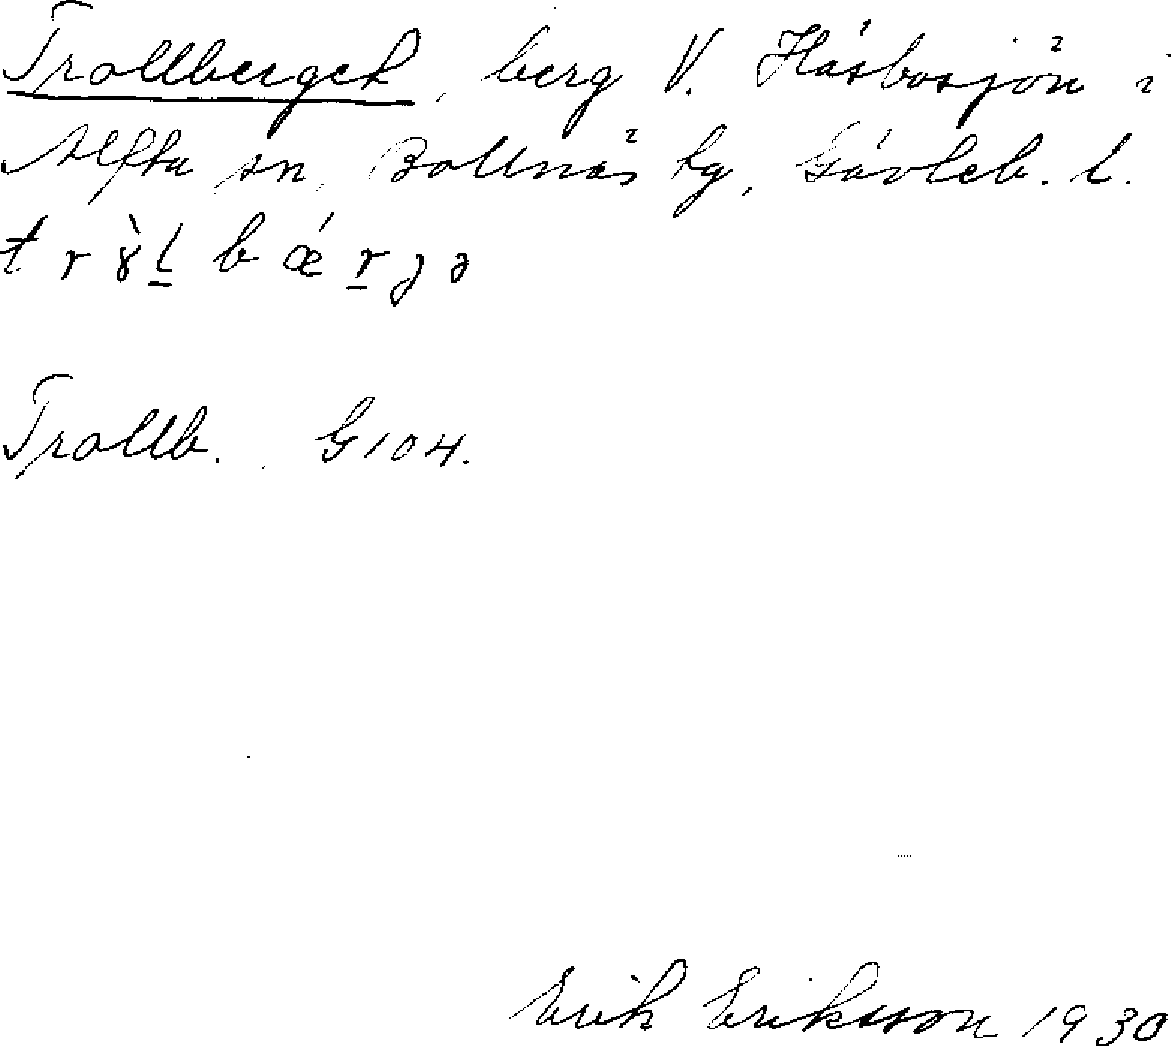 Trollberget, berg V. Håsbosjön i
Alfta sn, Bollnäs tg, Gävleb. l.
t r ɤ̀ l̲ b ǽ r̲ ȷ ə
Trollb. G104.
Erik Eriksson 1930